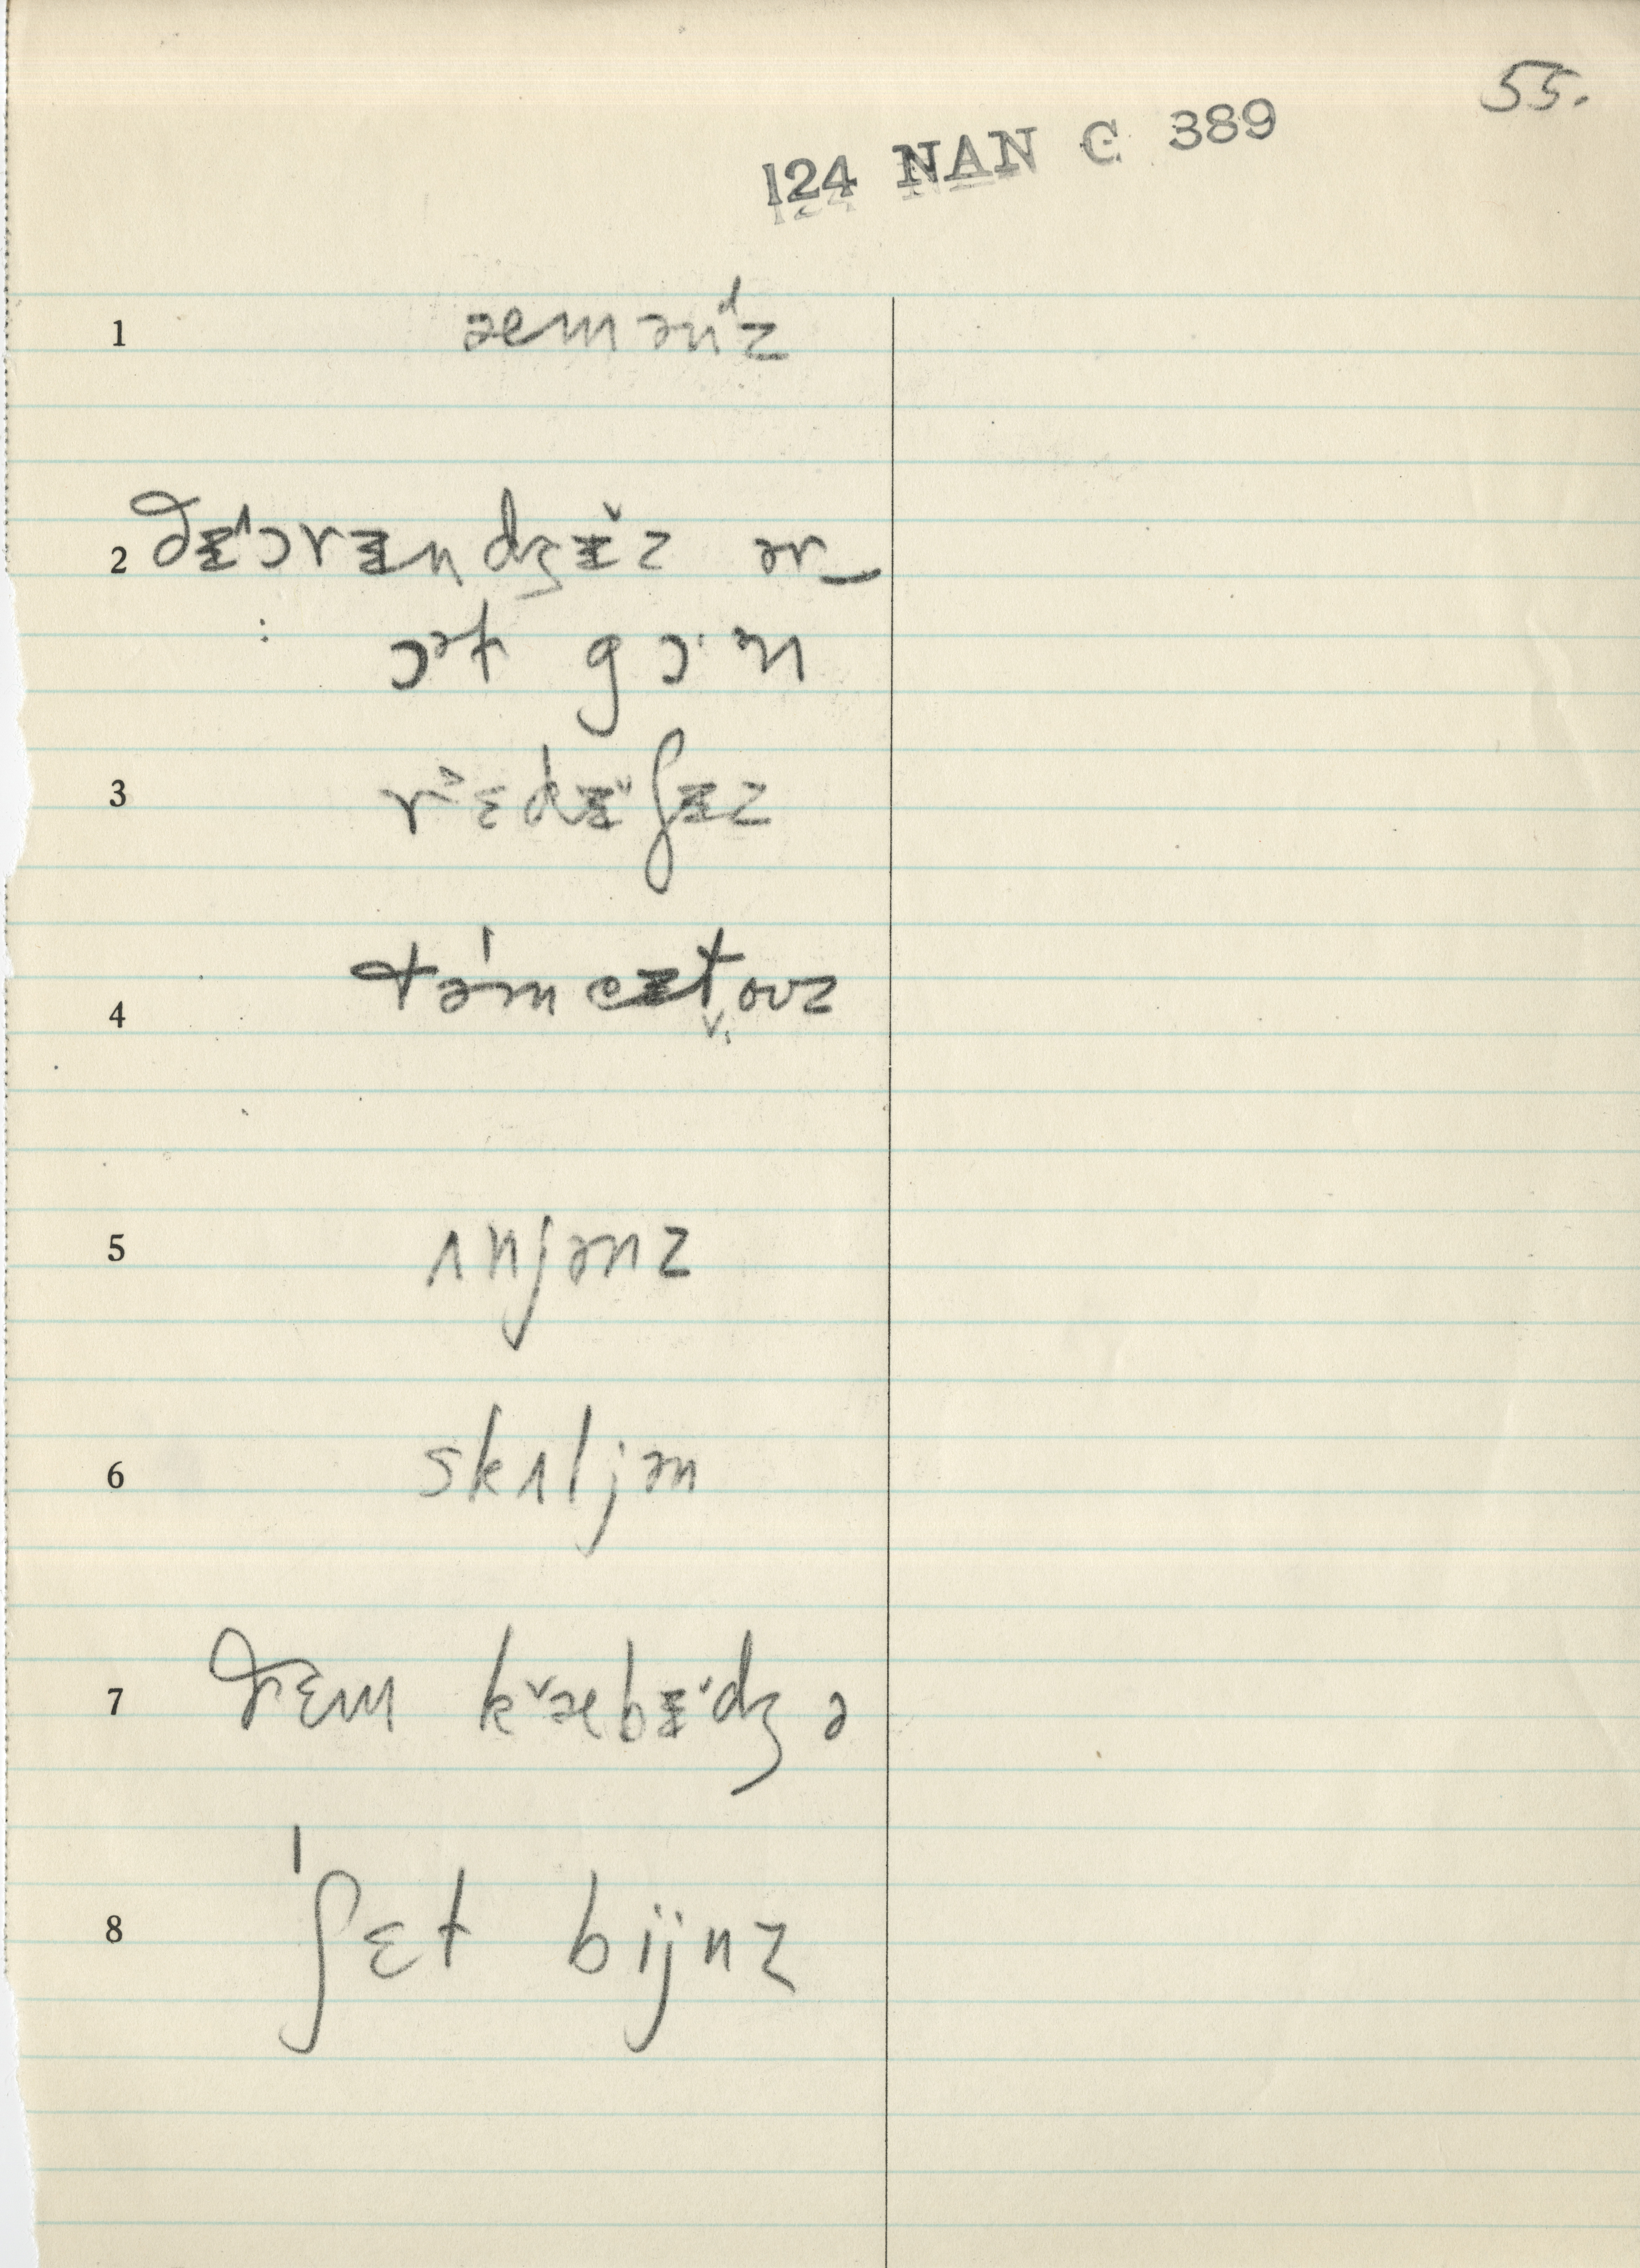 55.
124 NAN C 389
1 æmənᵈz
2 ðɨ^ɔrɨndʒɨ˅z ər‿
: ɔᵊt gɔ·ᵊn
3 rᵋɛdɨ˅ʃɨz
4 təˈmeɨt̬ouz
5 ʌnjənz
6 skʌljən
7 ðɛm k˅æbɨ˅dʒ ə
8 ˈʃɛt bijnz